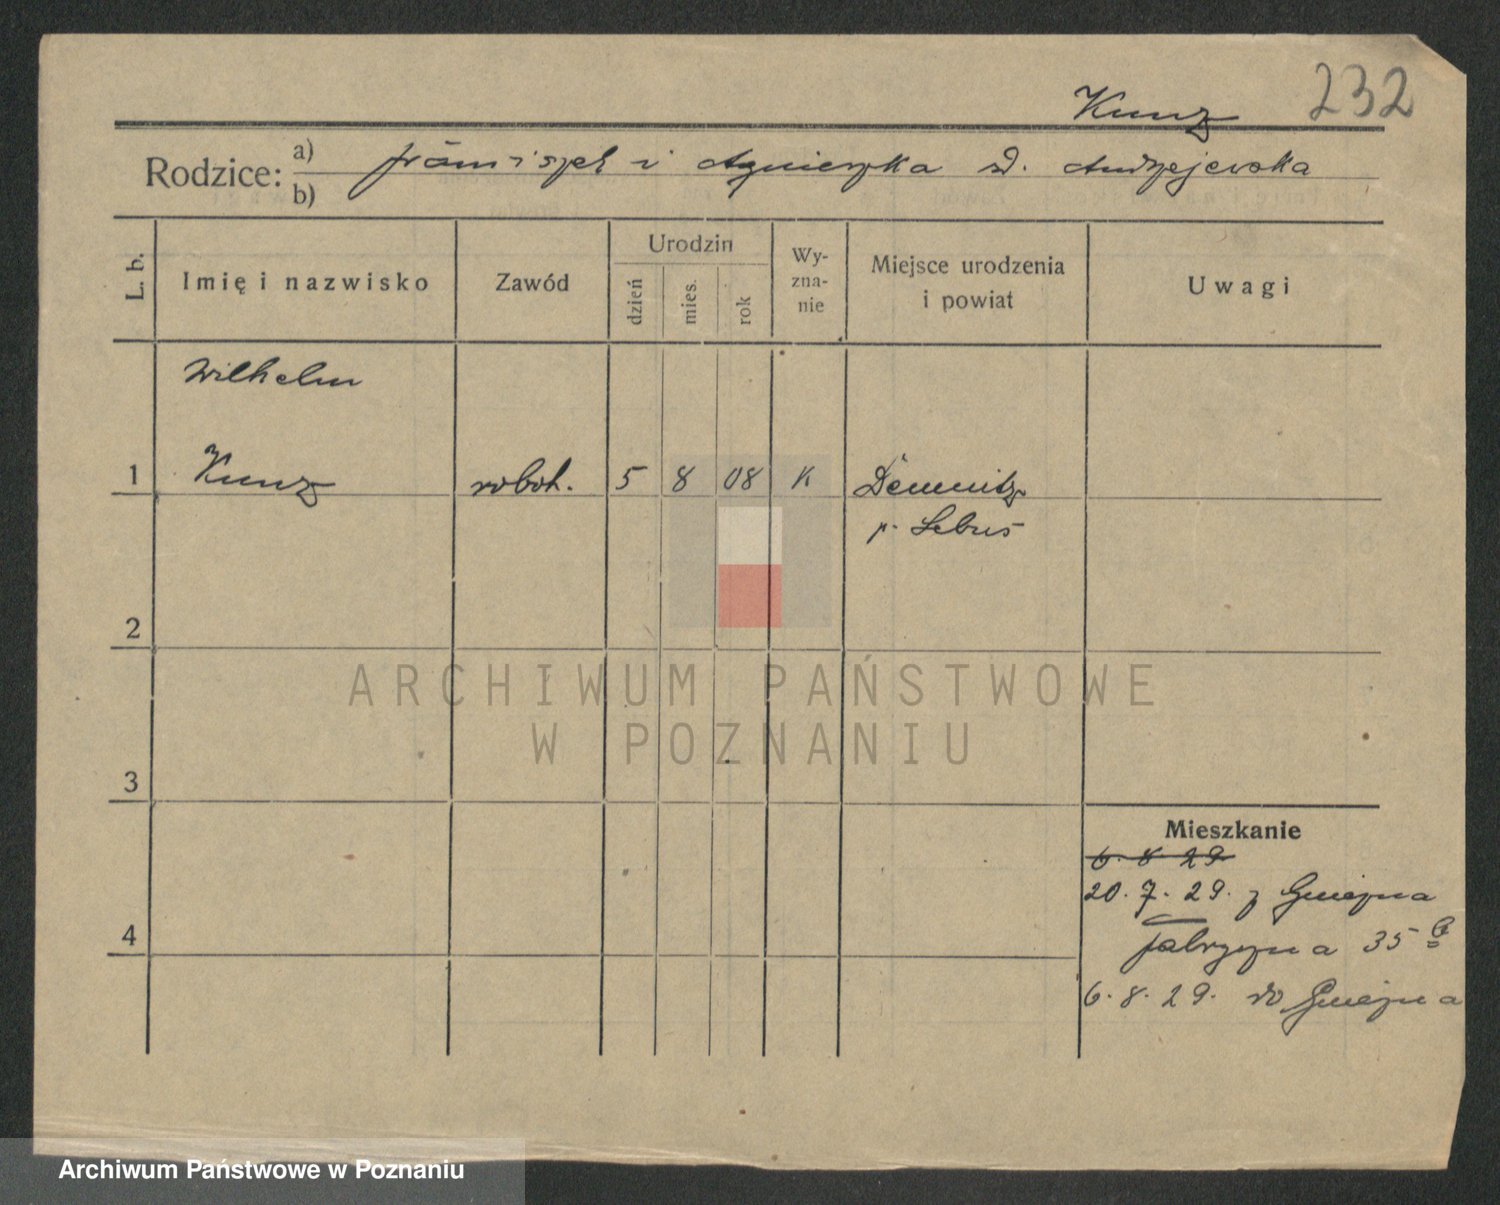 232
Kunz
Rodzice: a) b) Franciszek i Agnieszka z d. Andrzejewska
L. b.
Imię i nazwisko
Zawód
Urodzin
dzień
mies.
rok
Wy-
zna-
nie
Miejsce urodzenia
i powiat
Uwagi
Wilhelm
1 Kunz robotn. 5 8 08 K Demnitz
p. Lebus
2
3
4
ARCHIWUM PAŃSTWOWE
W POZNANIU
Mieszkanie
6. 8 29
20. 7. 29. z Gniezna
Fabryczna 35
6. 8. 29. do Gniezna
Archiwum Państwowe w Poznaniu